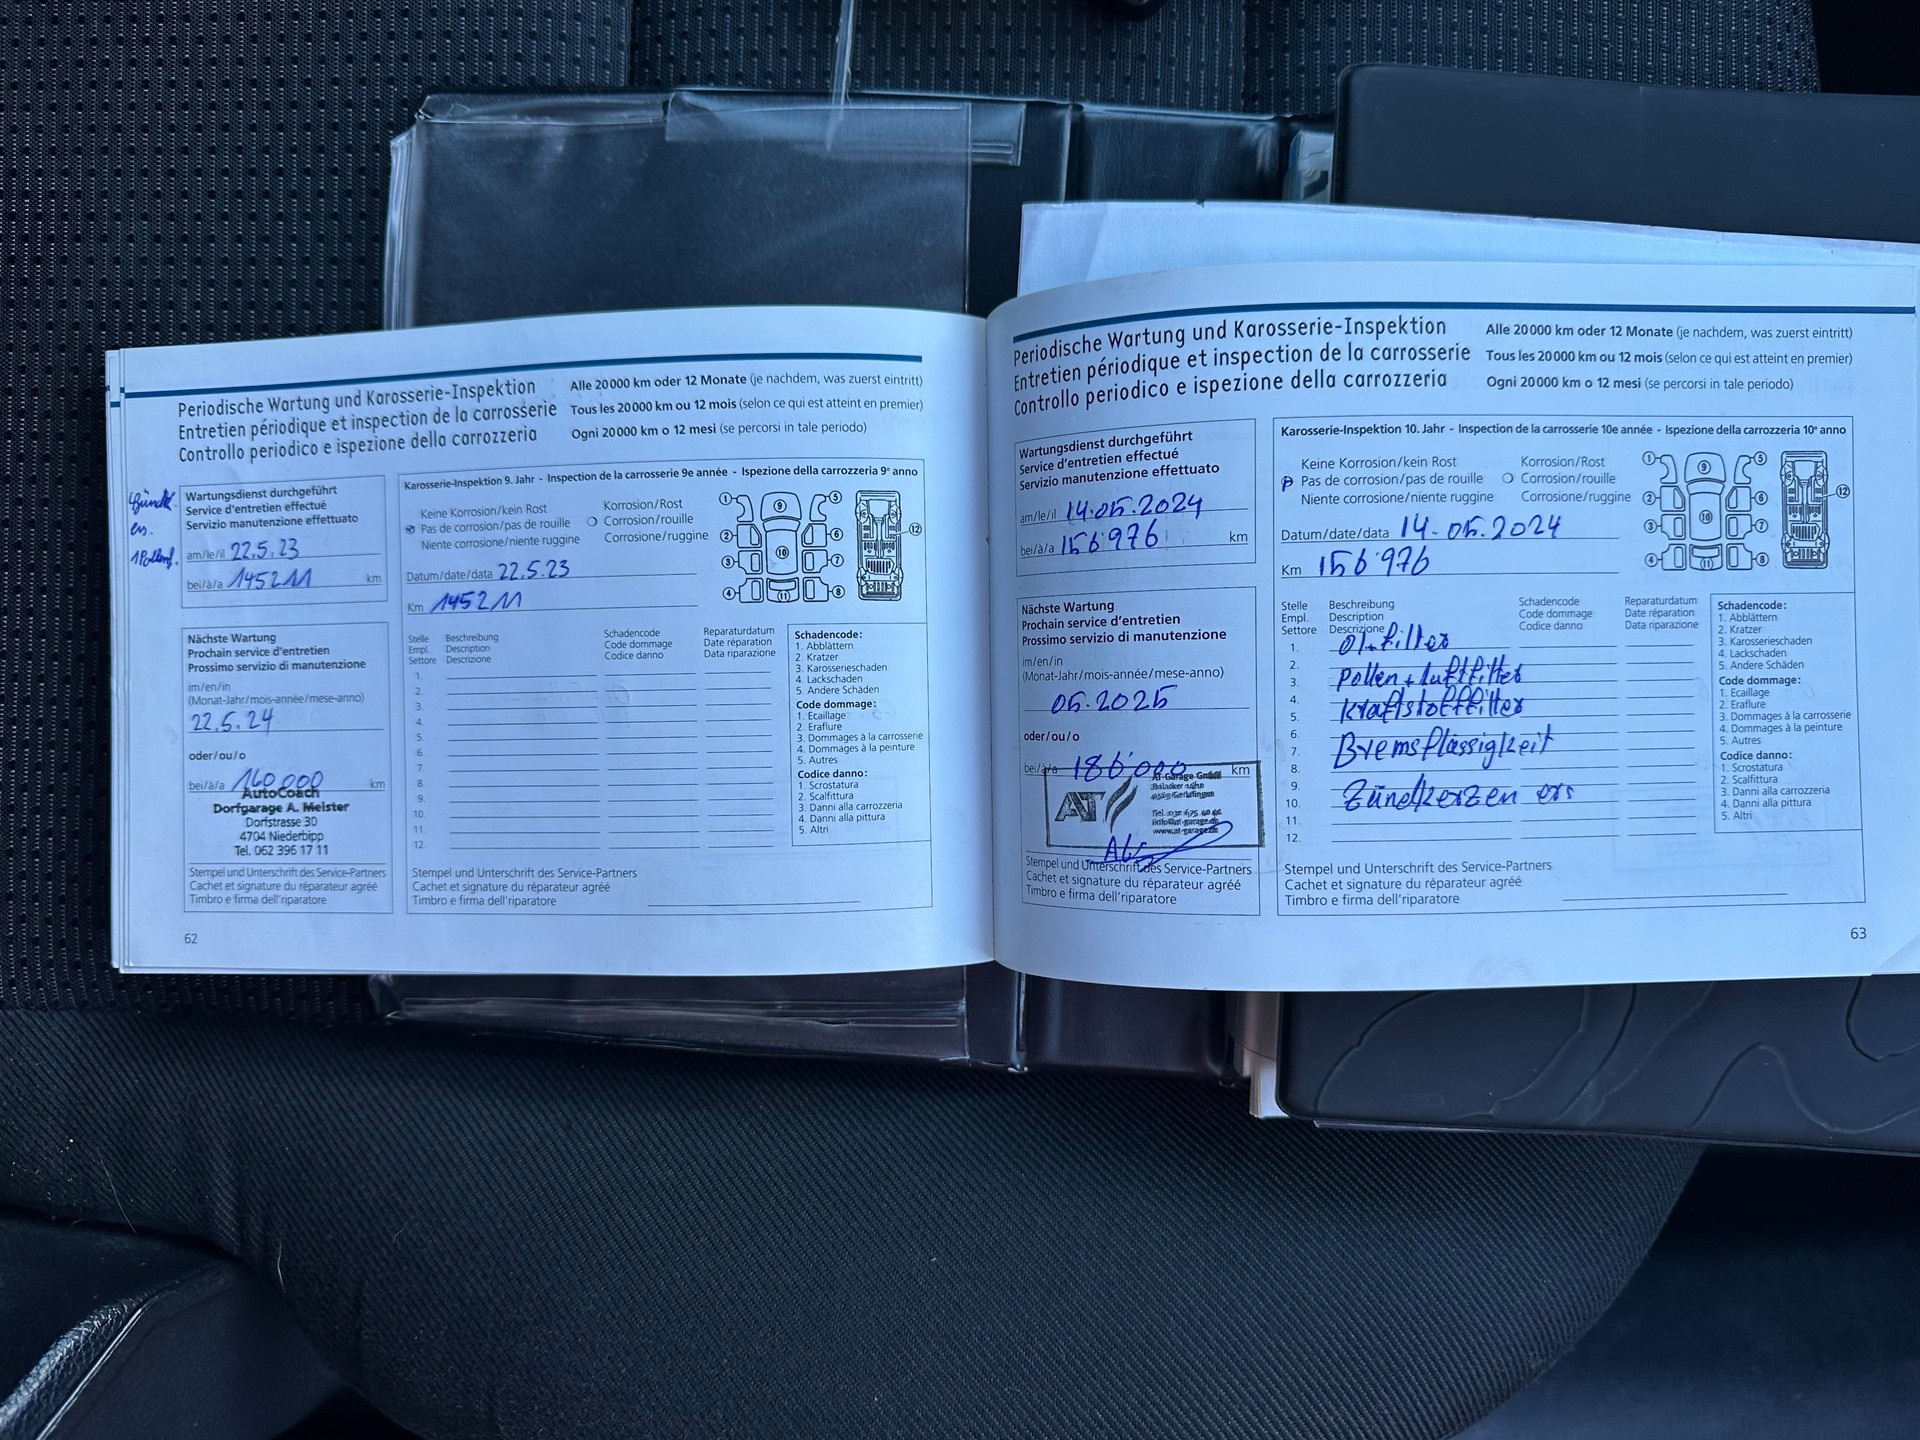 Periodische Wartung und Karosserie-Inspektion
Entretien périodique et inspection de la carrosserie
Controllo periodico e ispezione della carrozzeria
Alle 20 000 km oder 12 Monate (je nachdem, was zuerst eintritt)
Tous les 20 000 km ou 12 mois (selon ce qui est atteint en premier)
Ogni 20 000 km o 12 mesi (se percorsi in tale periodo)
Wartungsdienst durchgeführt
Service d'entretien effectué
Servizio manutenzione effettuato
am/le/il 22.5.23
bei/à/a 145211 km
Nächste Wartung
Prochain service d'entretien
Prossimo servizio di manutenzione
im/en/in
(Monat-Jahr/mois-année/mese-anno)
22.5.24
oder/ou/o
bei/à/a 160000 km
AutoCoach
Dorfgarage A. Meister
Dorfstrasse 30
4704 Niederbipp
Tel. 062 396 17 11
Stempel und Unterschrift des Service-Partners
Cachet et signature du réparateur agréé
Timbro e firma dell'riparatore
Karosserie-Inspektion 9. Jahr - Inspection de la carrosserie 9e année - Ispezione della carrozzeria 9° anno
Keine Korrosion/kein Rost
Pas de corrosion/pas de rouille
Niente corrosione/niente ruggine
Korrosion/Rost
Corrosion/rouille
Corrosione/ruggine
Datum/date/data 22.5.23
Km 145211
1 2 3 4 5 6 7 8 9 10 11 12
Stelle Beschreibung Schadencode Reparaturdatum
Empl. Description Code dommage Date réparation
Settore Descrizione Codice danno Data riparazione
1.
2.
3.
4.
5.
6.
7.
8.
9.
10.
11.
12.
Schadencode:
1. Abblättern
2. Kratzer
3. Karosserieschaden
4. Lackschaden
5. Andere Schäden
Code dommage:
1. Ecaillage
2. Eraflure
3. Dommages à la carrosserie
4. Dommages à la peinture
5. Autres
Codice danno:
1. Scrostatura
2. Scalfittura
3. Danni alla carrozzeria
4. Danni alla pittura
5. Altri
Stempel und Unterschrift des Service-Partners
Cachet et signature du réparateur agréé
Timbro e firma dell'riparatore
62
Periodische Wartung und Karosserie-Inspektion
Entretien périodique et inspection de la carrosserie
Controllo periodico e ispezione della carrozzeria
Alle 20 000 km oder 12 Monate (je nachdem, was zuerst eintritt)
Tous les 20 000 km ou 12 mois (selon ce qui est atteint en premier)
Ogni 20 000 km o 12 mesi (se percorsi in tale periodo)
Wartungsdienst durchgeführt
Service d'entretien effectué
Servizio manutenzione effettuato
am/le/il 14.05.2024
bei/à/a 156'976 km
Nächste Wartung
Prochain service d'entretien
Prossimo servizio di manutenzione
im/en/in
(Monat-Jahr/mois-année/mese-anno)
05.2025
oder/ou/o
bei/à/a 186'000 km
AT
AT-Garage GmbH
Stempel und Unterschrift des Service-Partners
Cachet et signature du réparateur agréé
Timbro e firma dell'riparatore
Karosserie-Inspektion 10. Jahr - Inspection de la carrosserie 10e année - Ispezione della carrozzeria 10° anno
Keine Korrosion/kein Rost
Pas de corrosion/pas de rouille
Niente corrosione/niente ruggine
Korrosion/Rost
Corrosion/rouille
Corrosione/ruggine
Datum/date/data 14.05.2024
Km 156'976
1 2 3 4 5 6 7 8 9 10 11 12
Stelle Beschreibung Schadencode Reparaturdatum
Empl. Description Code dommage Date réparation
Settore Descrizione Codice danno Data riparazione
1. Ölfilter
2.
3. Pollen + Luftfilter
4.
5. Kraftstofffilter
6.
7. Bremsflüssigkeit
8.
9.
10. Zündkerzen ers
11.
12.
Schadencode:
1. Abblättern
2. Kratzer
3. Karosserieschaden
4. Lackschaden
5. Andere Schäden
Code dommage:
1. Ecaillage
2. Eraflure
3. Dommages à la carrosserie
4. Dommages à la peinture
5. Autres
Codice danno:
1. Scrostatura
2. Scalfittura
3. Danni alla carrozzeria
4. Danni alla pittura
5. Altri
Stempel und Unterschrift des Service-Partners
Cachet et signature du réparateur agréé
Timbro e firma dell'riparatore
63